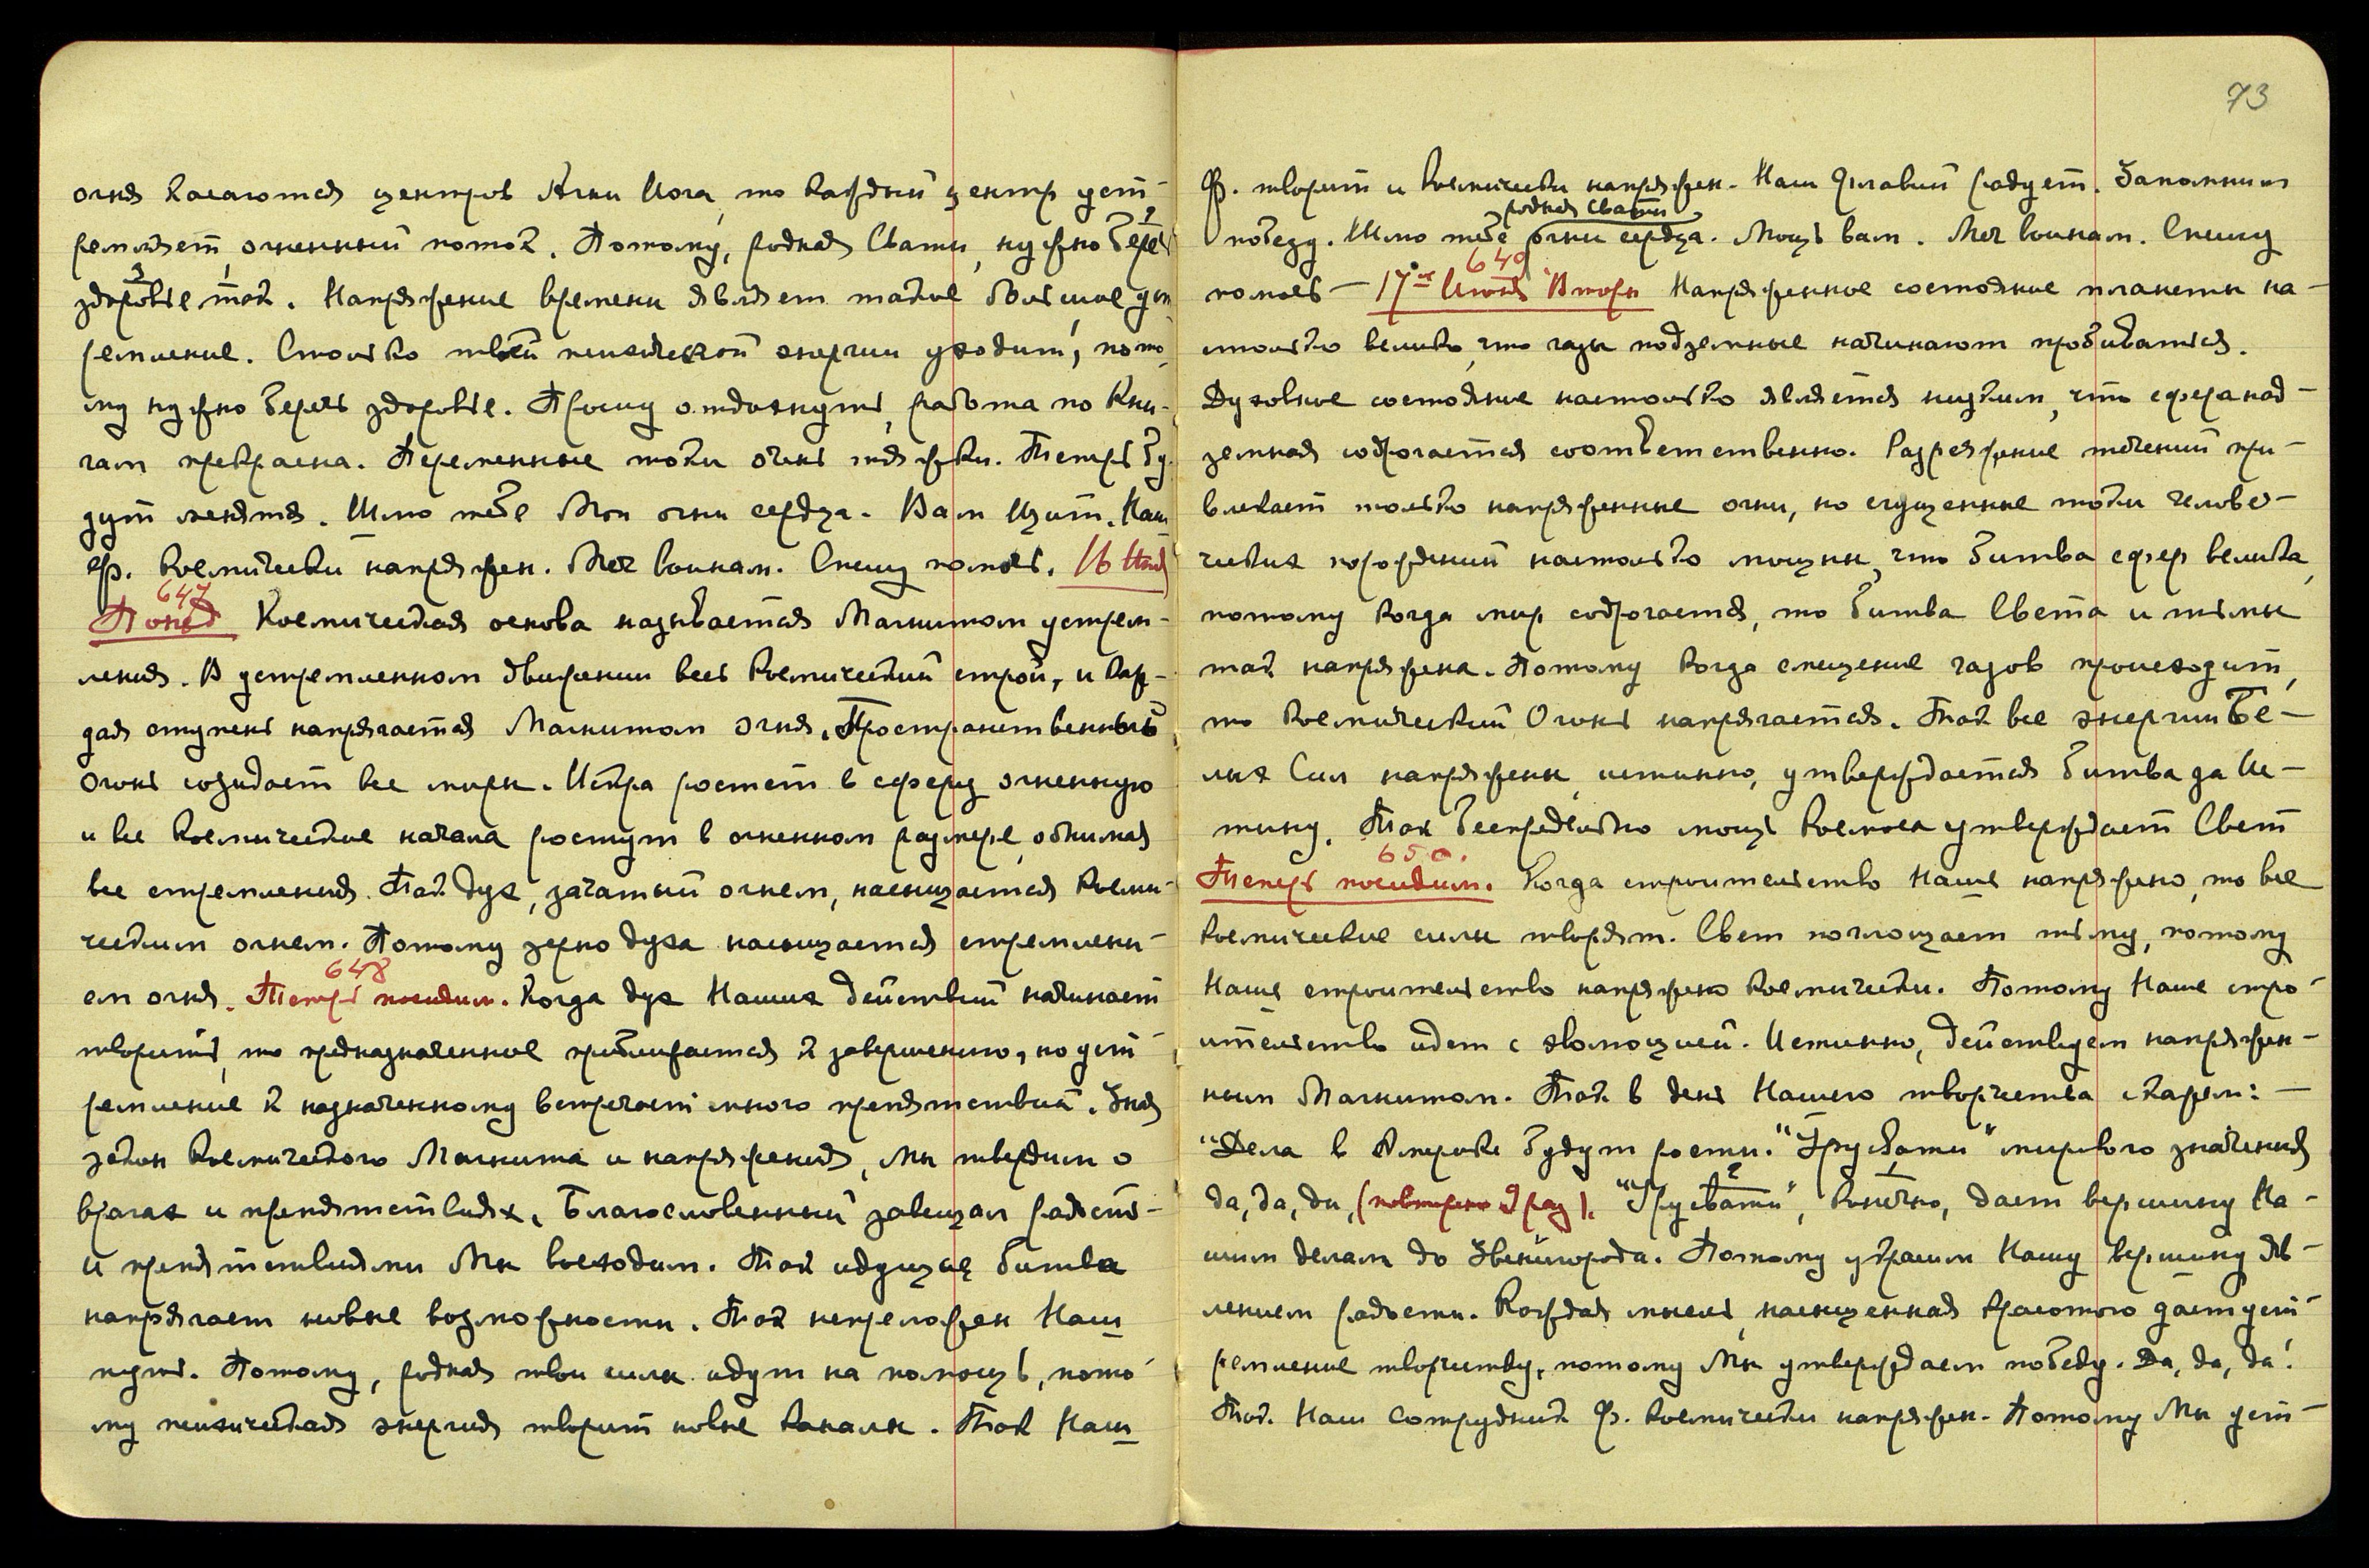 огня касаются центров Агни Йога, то каждый центр уст-
ремляет огненный поток. Потому, родная Свати, нужно беречь
здоровье так. Напряжение времени являет такое большое уст
ремление. Столько твоей психической энергии уходит, пото-
му нужно беречь здоровье. Прошу отдохнуть, работа по Кни-
гам прекрасна. Переменные токи очень тяжки. Теперь бу-
дут меняться. Шлю тебе Мои огни сердца. Вам Щит. Наш
Ф. космически напряжен. Меч воинам. Спешу помочь. 16 Июня
647
Понед Космическая основа называется Магнитом устрем-
ления. В устремленном движении весь космический строй, и каж-
дая ступень напрягается Магнитом огня. Пространственный
огонь созидает все миры. Искра ростет в сферу огненную
и все космические начала ростут в огненном размере, обнимая
все стремления. Так дух, зачатый огнем, насыщается косми-
ческим огнем. Потому зерно духа насыщается стремлени-
648
ем огня. Теперь посидим. Когда дух Наших действий начинает
творить, то предназначенное приближается к завершению, но уст-
ремление к назначенному встречает много препятствий. Зная
закон Космического Магнита и напряжения, мы твердим о
врагах и препятствиях. Благословенный завещал радость
и препятствиями Мы восходим. Так идущая битва
напрягает новые возможности. Так непреложен Наш
путь. Потому, родная твои силы идут на помощь, пото-
му психическая энергия творит новые каналы. Так Наш
73
Ф. творит и космически напряжен. Наш Филавий радует. Запомним
родная Свати
победу. Шлю тебе огни сердца. Мощь вам. Меч воинам. Спешу
649
помочь — 17ое Июня Вторн Напряженное состояние планеты на-
столько велико, что газы подземные начинают пробиваться.
Духовное состояние настолько является низким, что сфера над-
земная содрогается соответственно. Разрежение течений при-
влекает только напряженные огни, но сгущенные токи челове-
ческих порождений настолько мощны, что битва сфер велика,
потому когда мир содрогается, то битва Света и тьмы
так напряжена. Потому когда смещение газов происходит,
то космический Огонь напрягается. Так все энергии Бе-
лых Сил напряжены, истинно, утверждается битва за Ис-
тину. Так беспредельно мощь Космоса утверждает Свет
650.
Теперь посидим. Когда строительство Наше напряжено, то все
космические силы творят. Свет поглощает тьму, потому
Наше строительство напряжено космически. Потому Наше стро-
ительство идет с эволюцией. Истинно, действуем напряжен-
ным Магнитом. Так в день Нашего творчества скажем: —
"Дела в Америке будут рости. "Урусвати" мирового значения
да, да, да, (повторено 9 раз). "Урусвати", конечно, дает вершину На-
шим делам до Звенигорода. Потому украсим Нашу вершину яв-
лением радости. Каждая мысль, насыщенная красотою дает уст-
ремление творчеству, потому Мы утверждаем победу. Да, да, да!
Так Наш Сотрудник Ф. космически напряжен. Потому Мы уст-